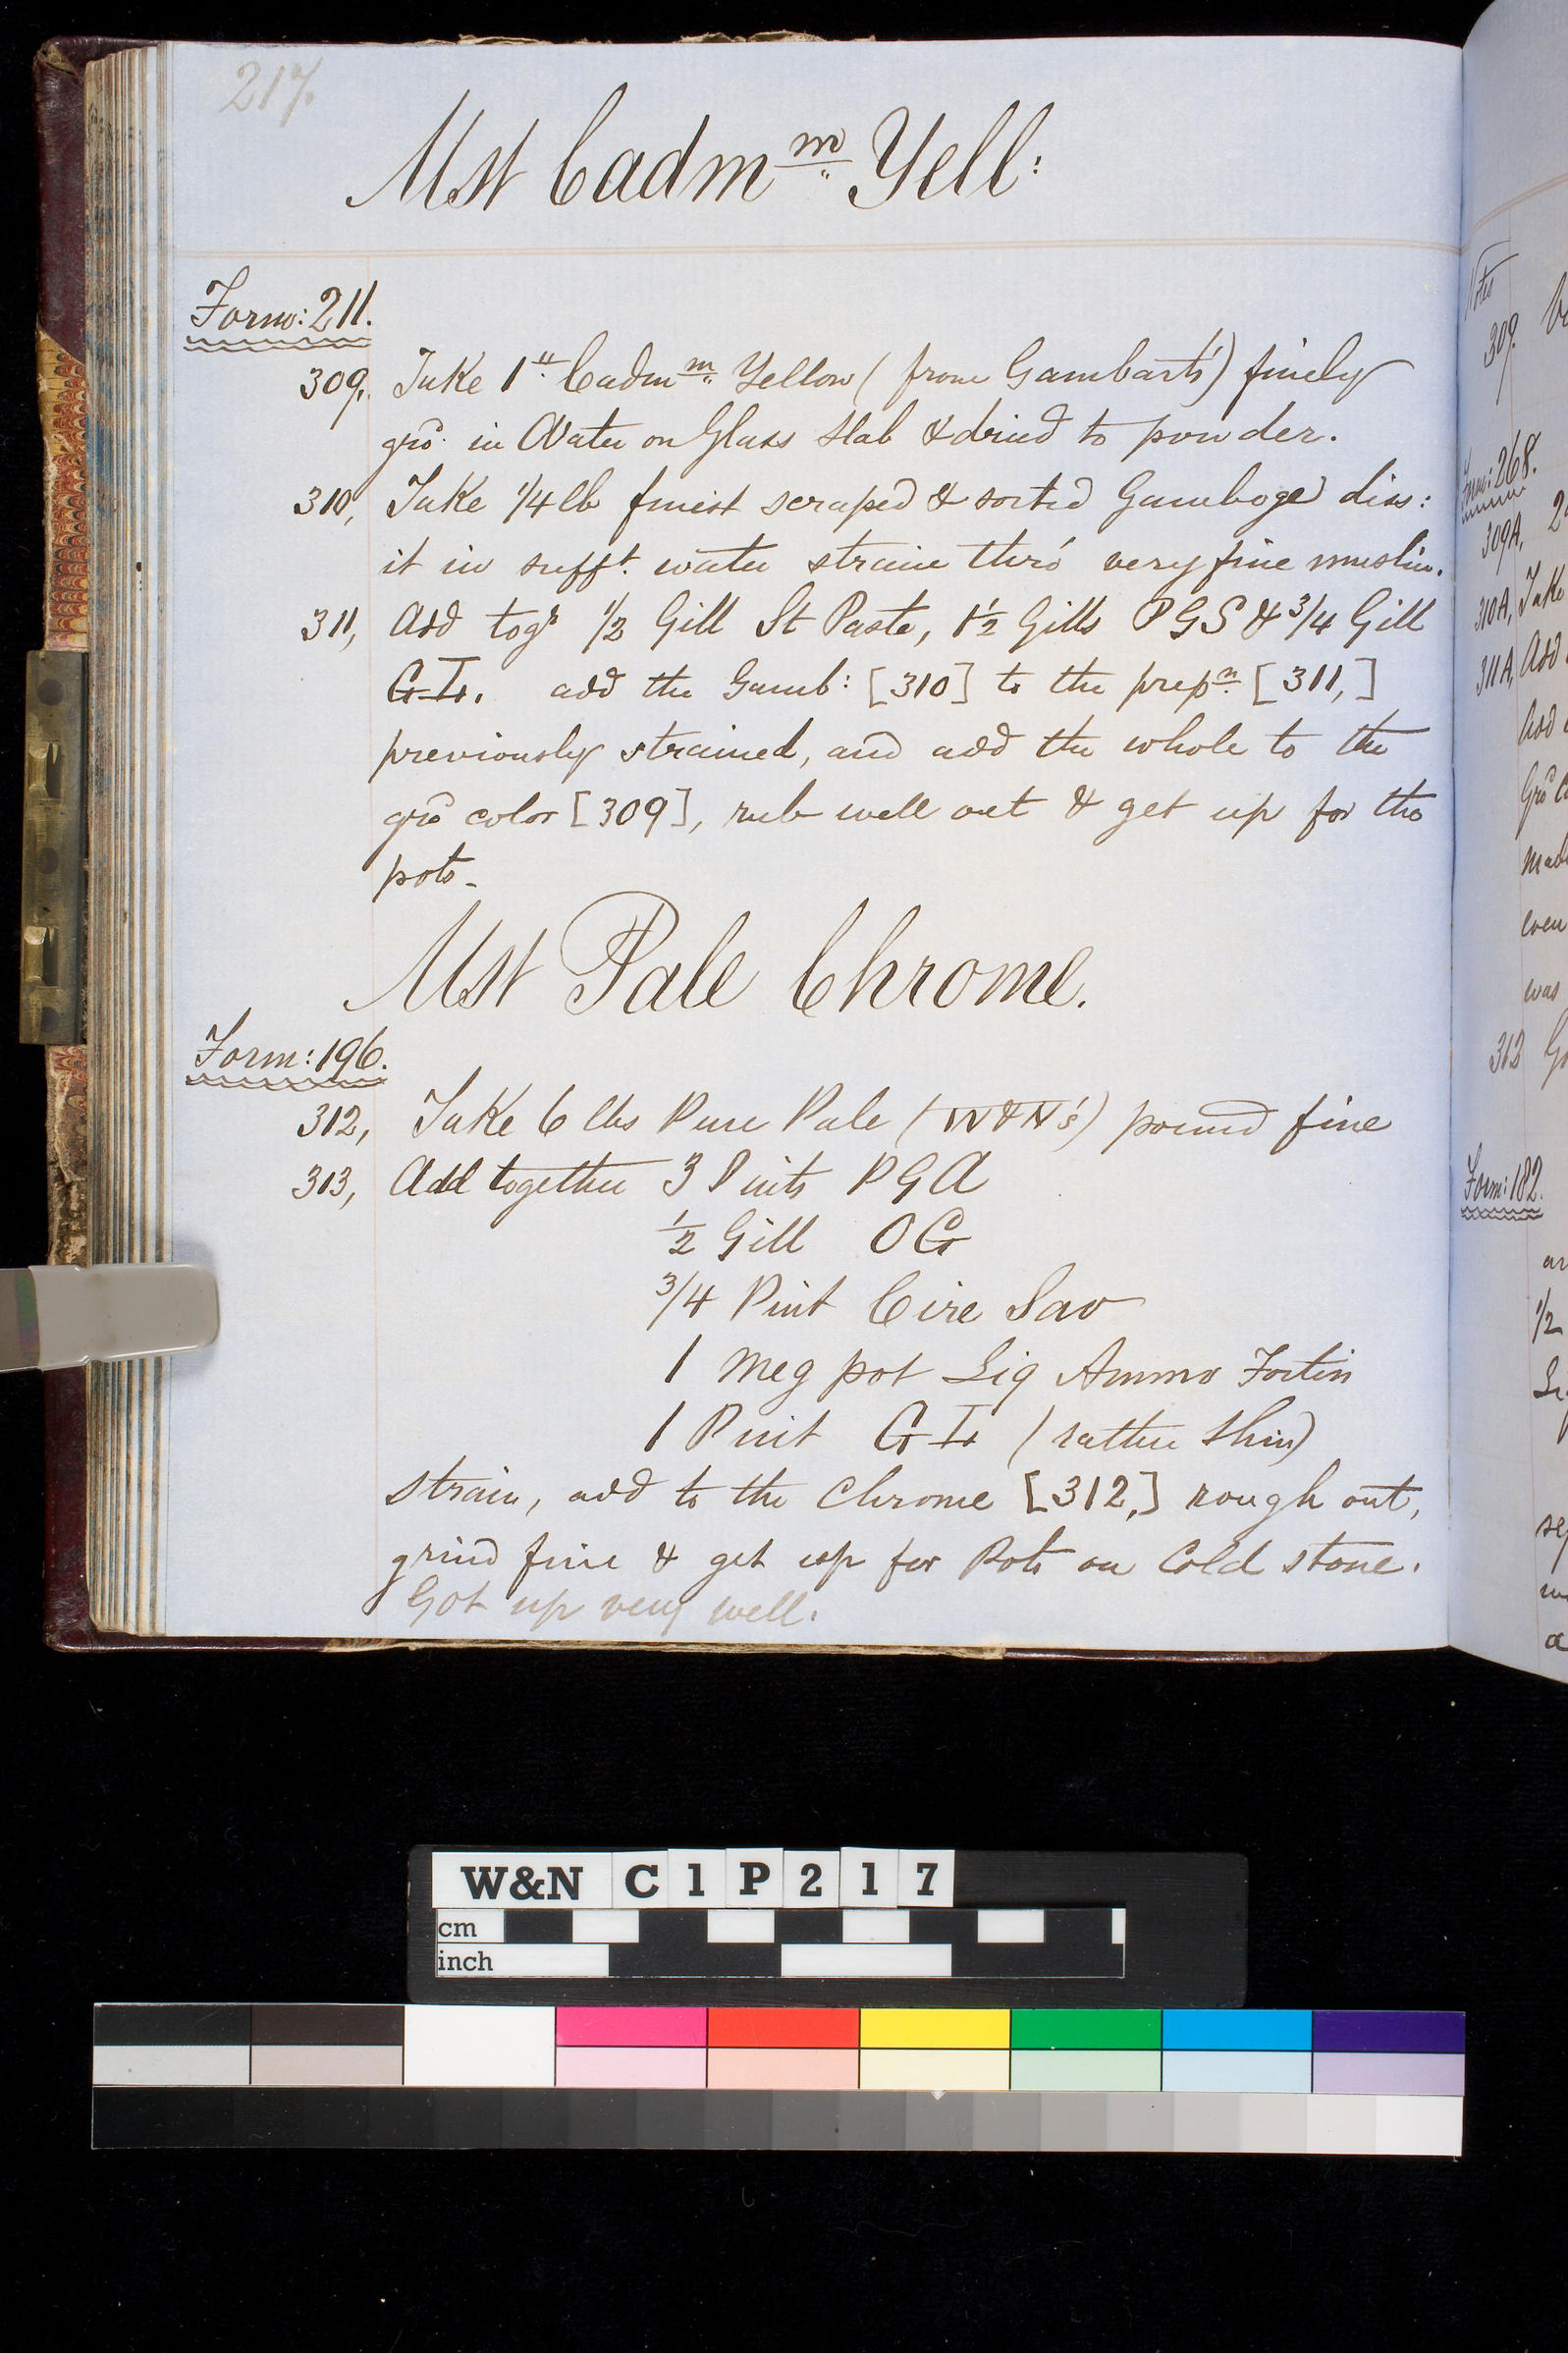 217.
Mst Cadm^m. Yell:
Form: 211.
309,. Take 1^lb. Cadm^m. Yellow (from Gambart's) finely
gro^d. in Water on Glass slab & dried to powder.
310, Take 1/4 lb finest scraped & sorted Gamboge diss:
it in suff^t. water strain thro' very fine muslin.
311, Add tog^r 1/2 Gill St Paste, 1 1/2 Gills PGS & 3/4 Gill
GI. add the Gamb: [310] to the prep^n. [311,]
previously strained, and add the whole to the
gr^d color [309], rub well out & get up for the
pots -
Mst Pale Chrome.
Form: 196.
312, Take 6 lbs Pure Pale (W&N's) pound fine
313, Add together 3 Pints PGA
1/2 Gill OG
3/4 Pint Cire Sav
1 Meg pot Liq Ammo Fortis
1 Pint GI (rather thin)
strain, add to the Chrome [312,] rough out,
grind fine & get up for Pots on Cold stone.
Got up very well.
Notes
309.
Form: 268.
309A,
310A, Take
311A, Add
Add
Gr^d
even
was
312
Form: 182.
1/2
W&N C1P217
cm
inch